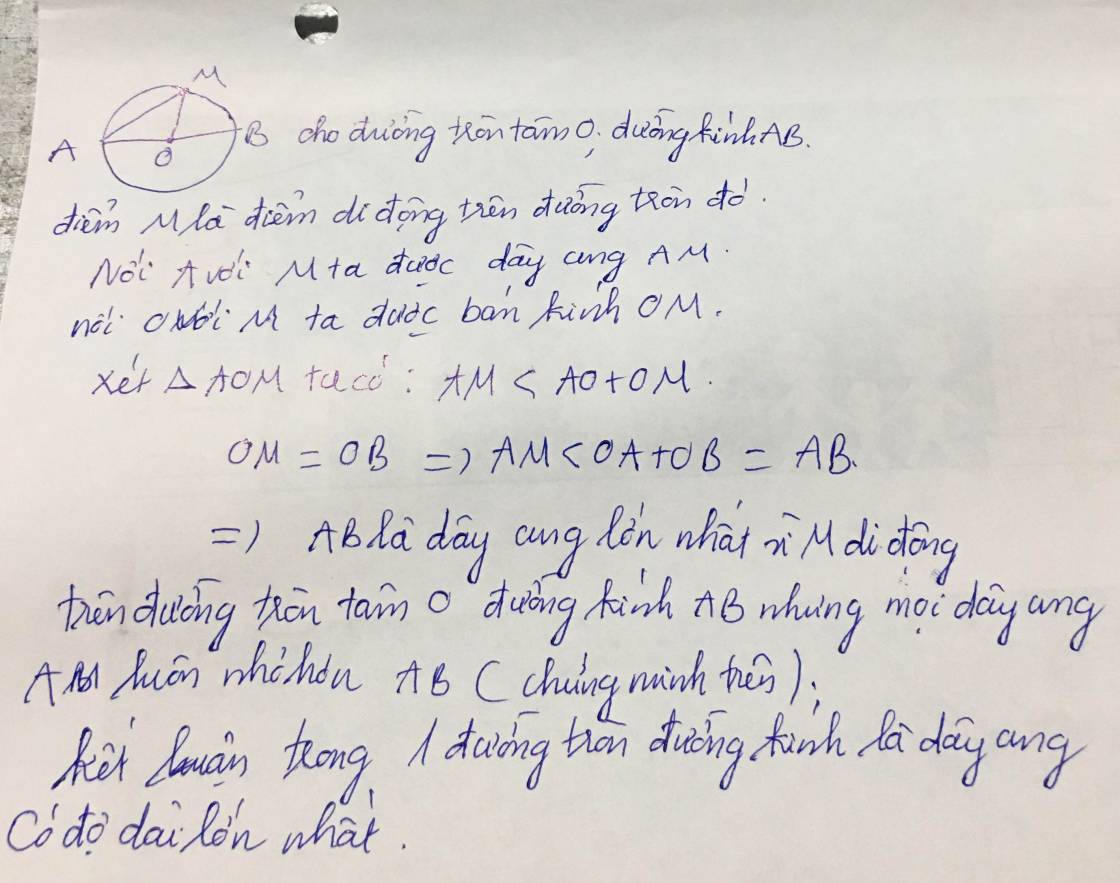 M
A
O
B cho đường tròn tâm O, đường kính AB.
điểm M là điểm di động trên đường tròn đó.
Nối A với M ta được dây cung AM.
nối O với M ta được bán kính OM.
Xét Δ AOM ta có: AM < AO + OM.
OM = OB => AM < OA + OB = AB.
=> AB là dây cung lớn nhất vì M di động
trên đường tròn tâm O đường kính AB nhưng mọi dây cung
AM luôn nhỏ hơn AB (chứng minh trên).
kết luận trong 1 đường tròn đường kính là dây cung
Có độ dài lớn nhất.